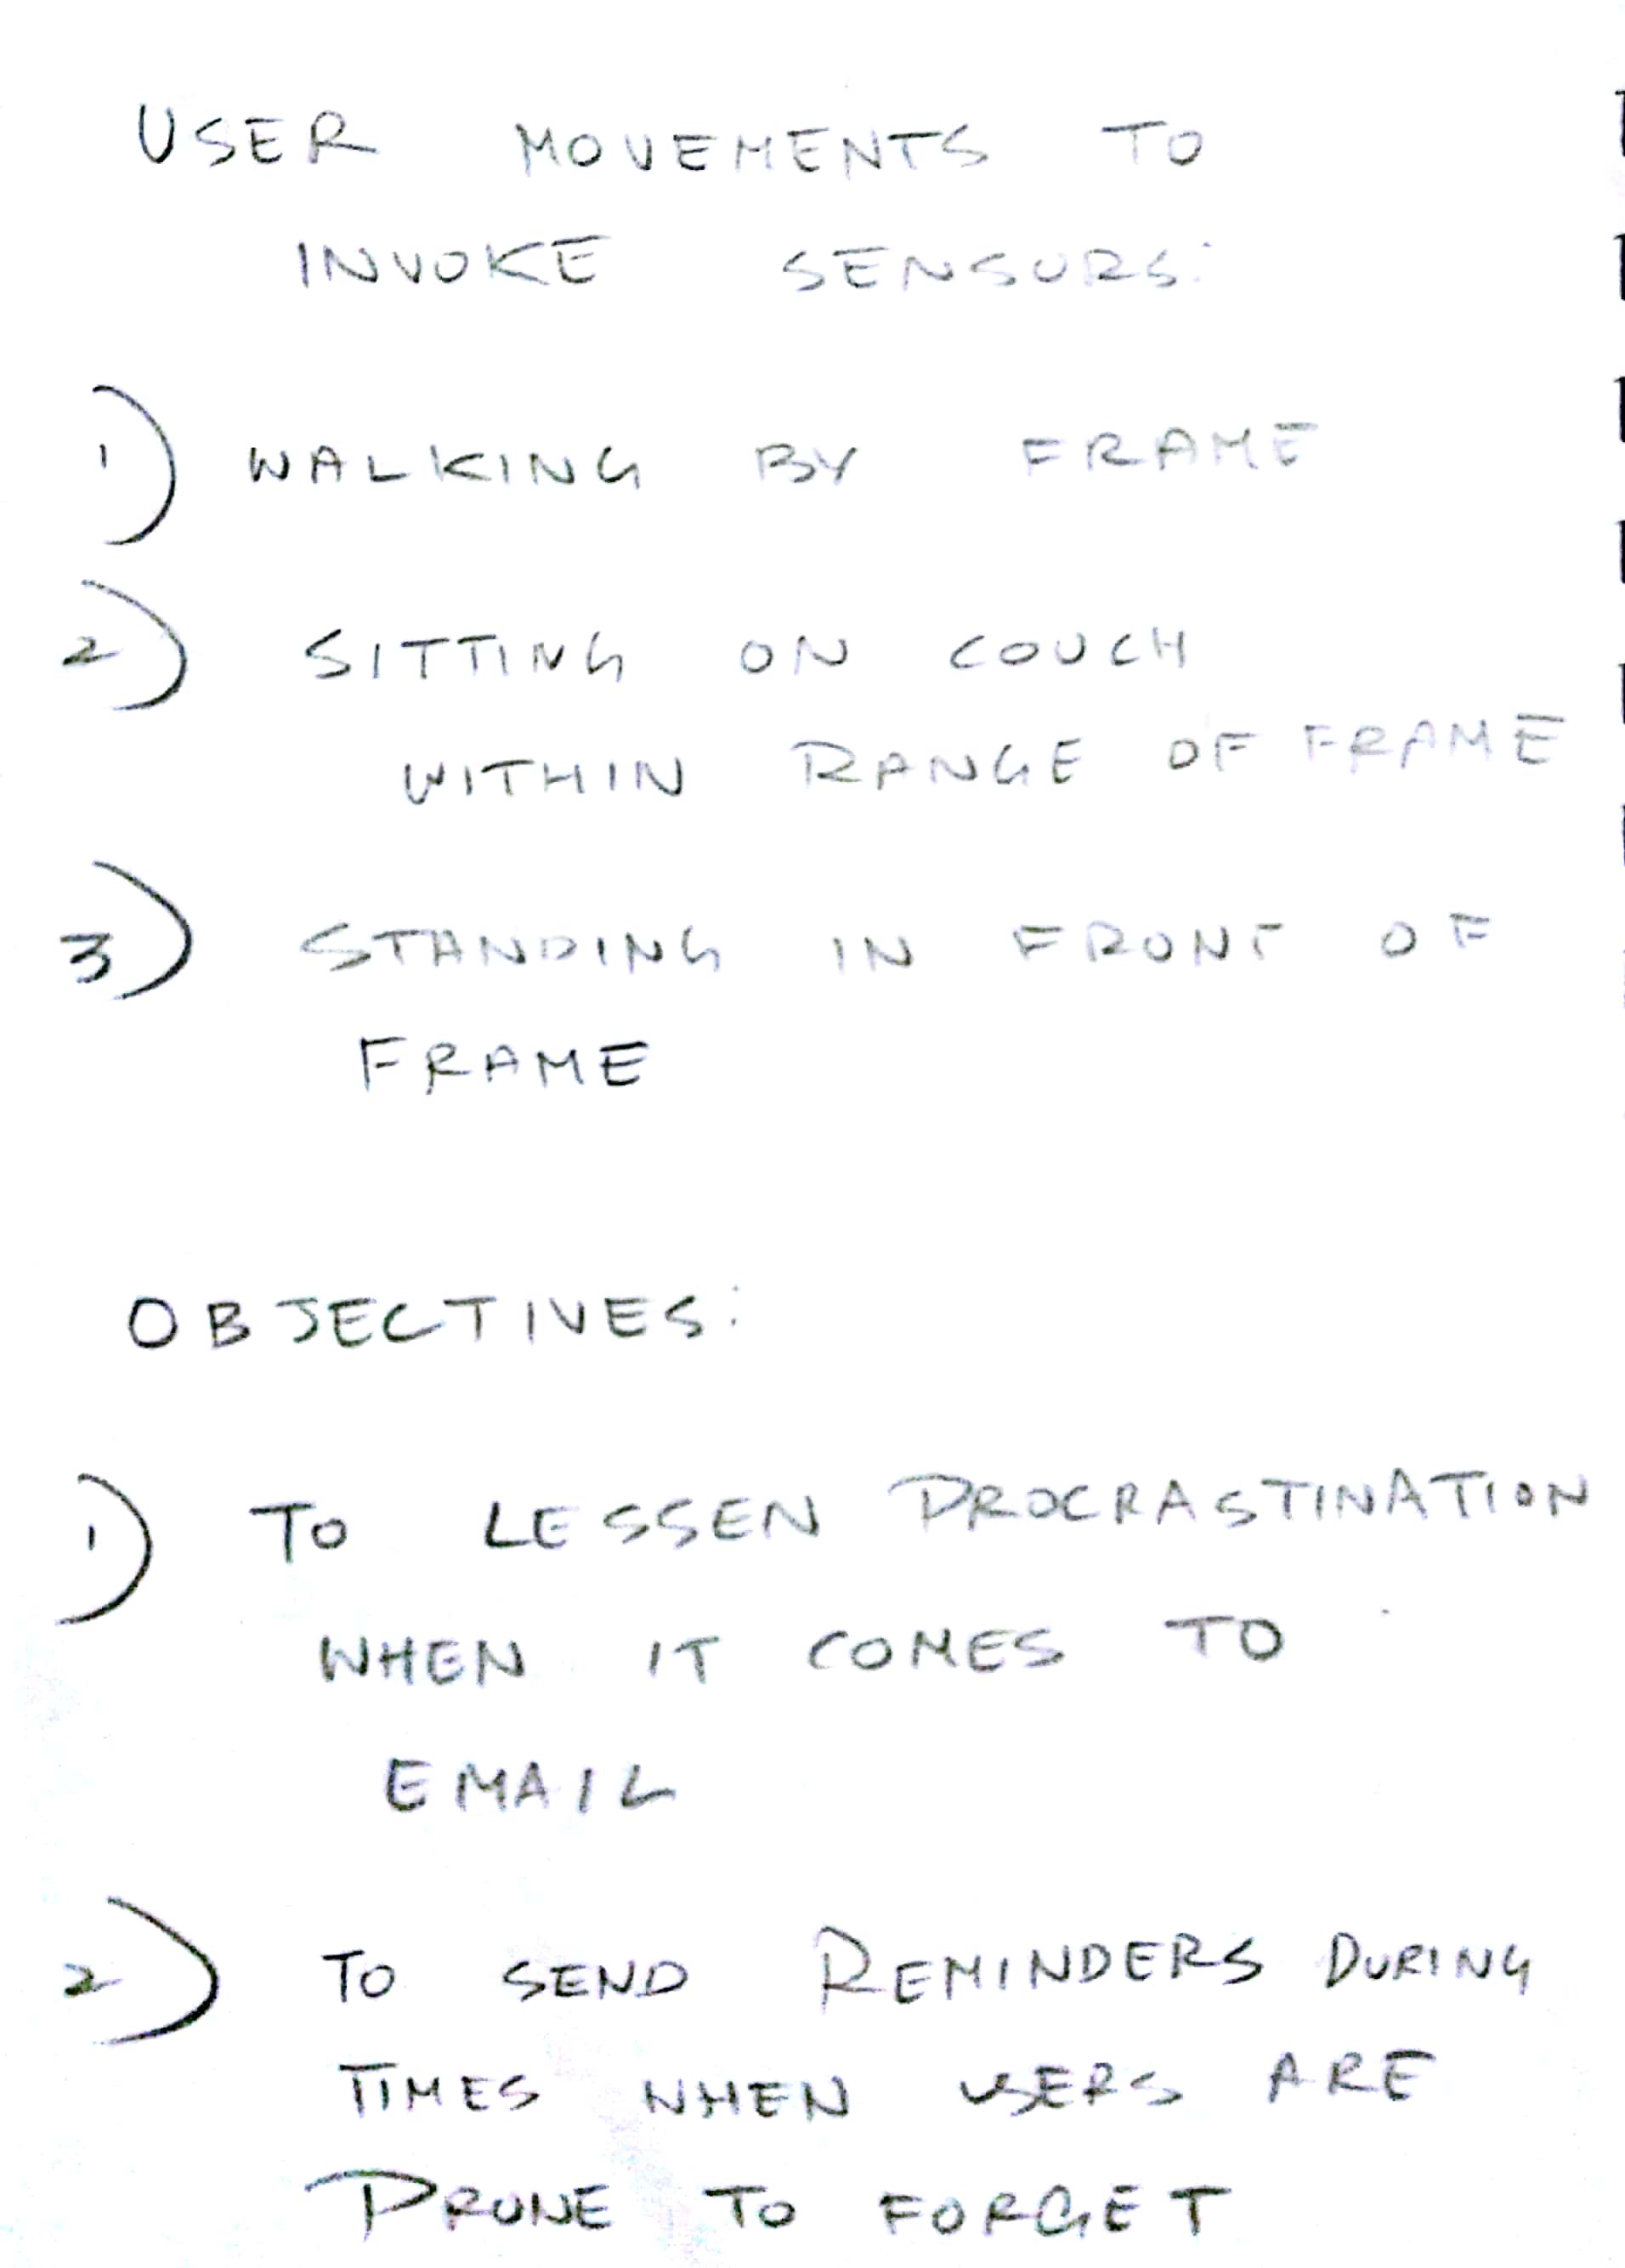 USER MOVEMENTS TO
INVOKE SENSORS:
1) WALKING BY FRAME
2) SITTING ON COUCH
WITHIN RANGE OF FRAME
3) STANDING IN FRONT OF
FRAME
OBJECTIVES:
1) TO LESSEN PROCRASTINATION
WHEN IT COMES TO
EMAIL
2) TO SEND REMINDERS DURING
TIMES WHEN USERS ARE
PRONE TO FORGET